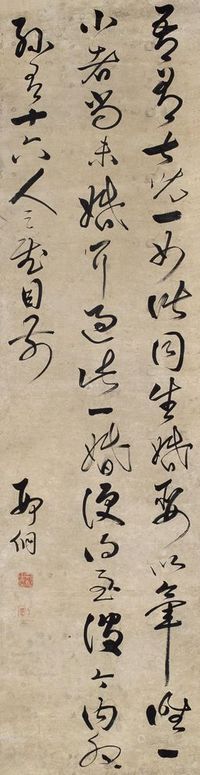 吾有七兒一女皆同生婚娶以畢唯一
小者尚未婚耳過此一婚便得至彼今内外
孫有十六人足慰目前
邢侗